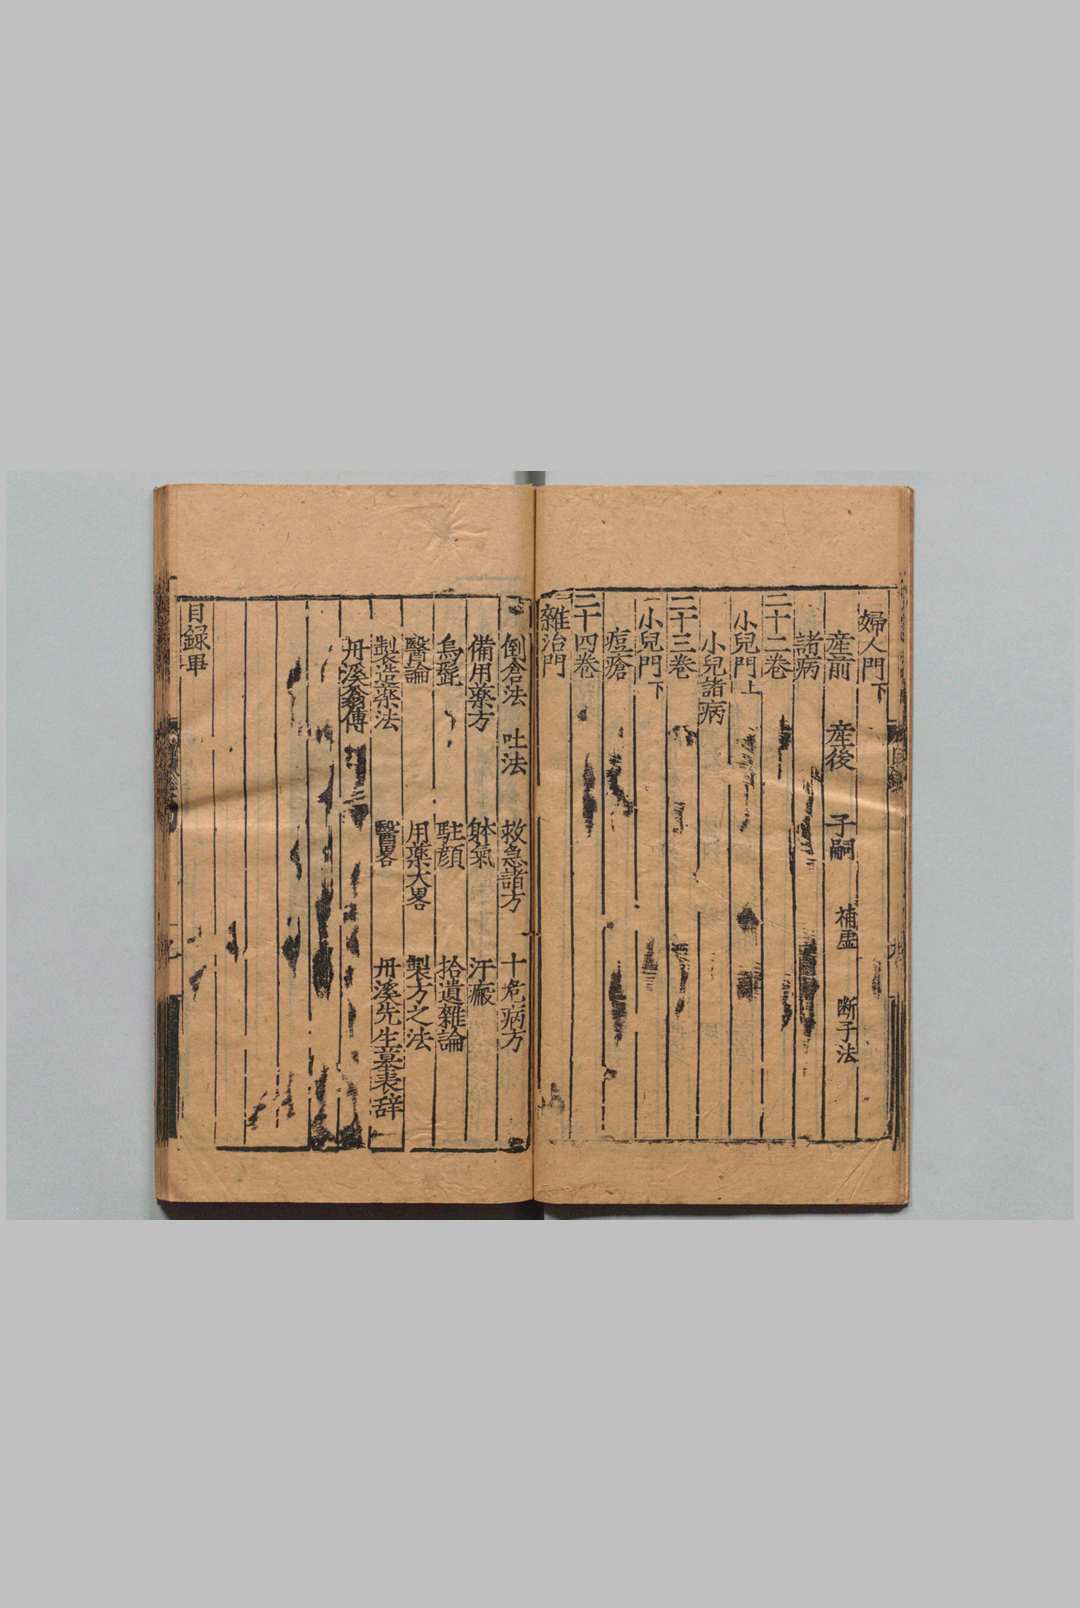 婦人門下
産前 産後 子嗣 補虛 断子法
諸病
二十二卷
小兒門上
小兒諸病
二十三卷
小兒門下
痘瘡
二十四卷
雜治門
倒倉法 吐法 救急諸方 十危病方
備用藥方 躰氣 汗癜
烏髭 駐顔 拾遺雜論
醫論 用藥大畧 製方之法
製造藥法 醫畧 丹溪先生墓表辞
丹溪翁傳
目録畢